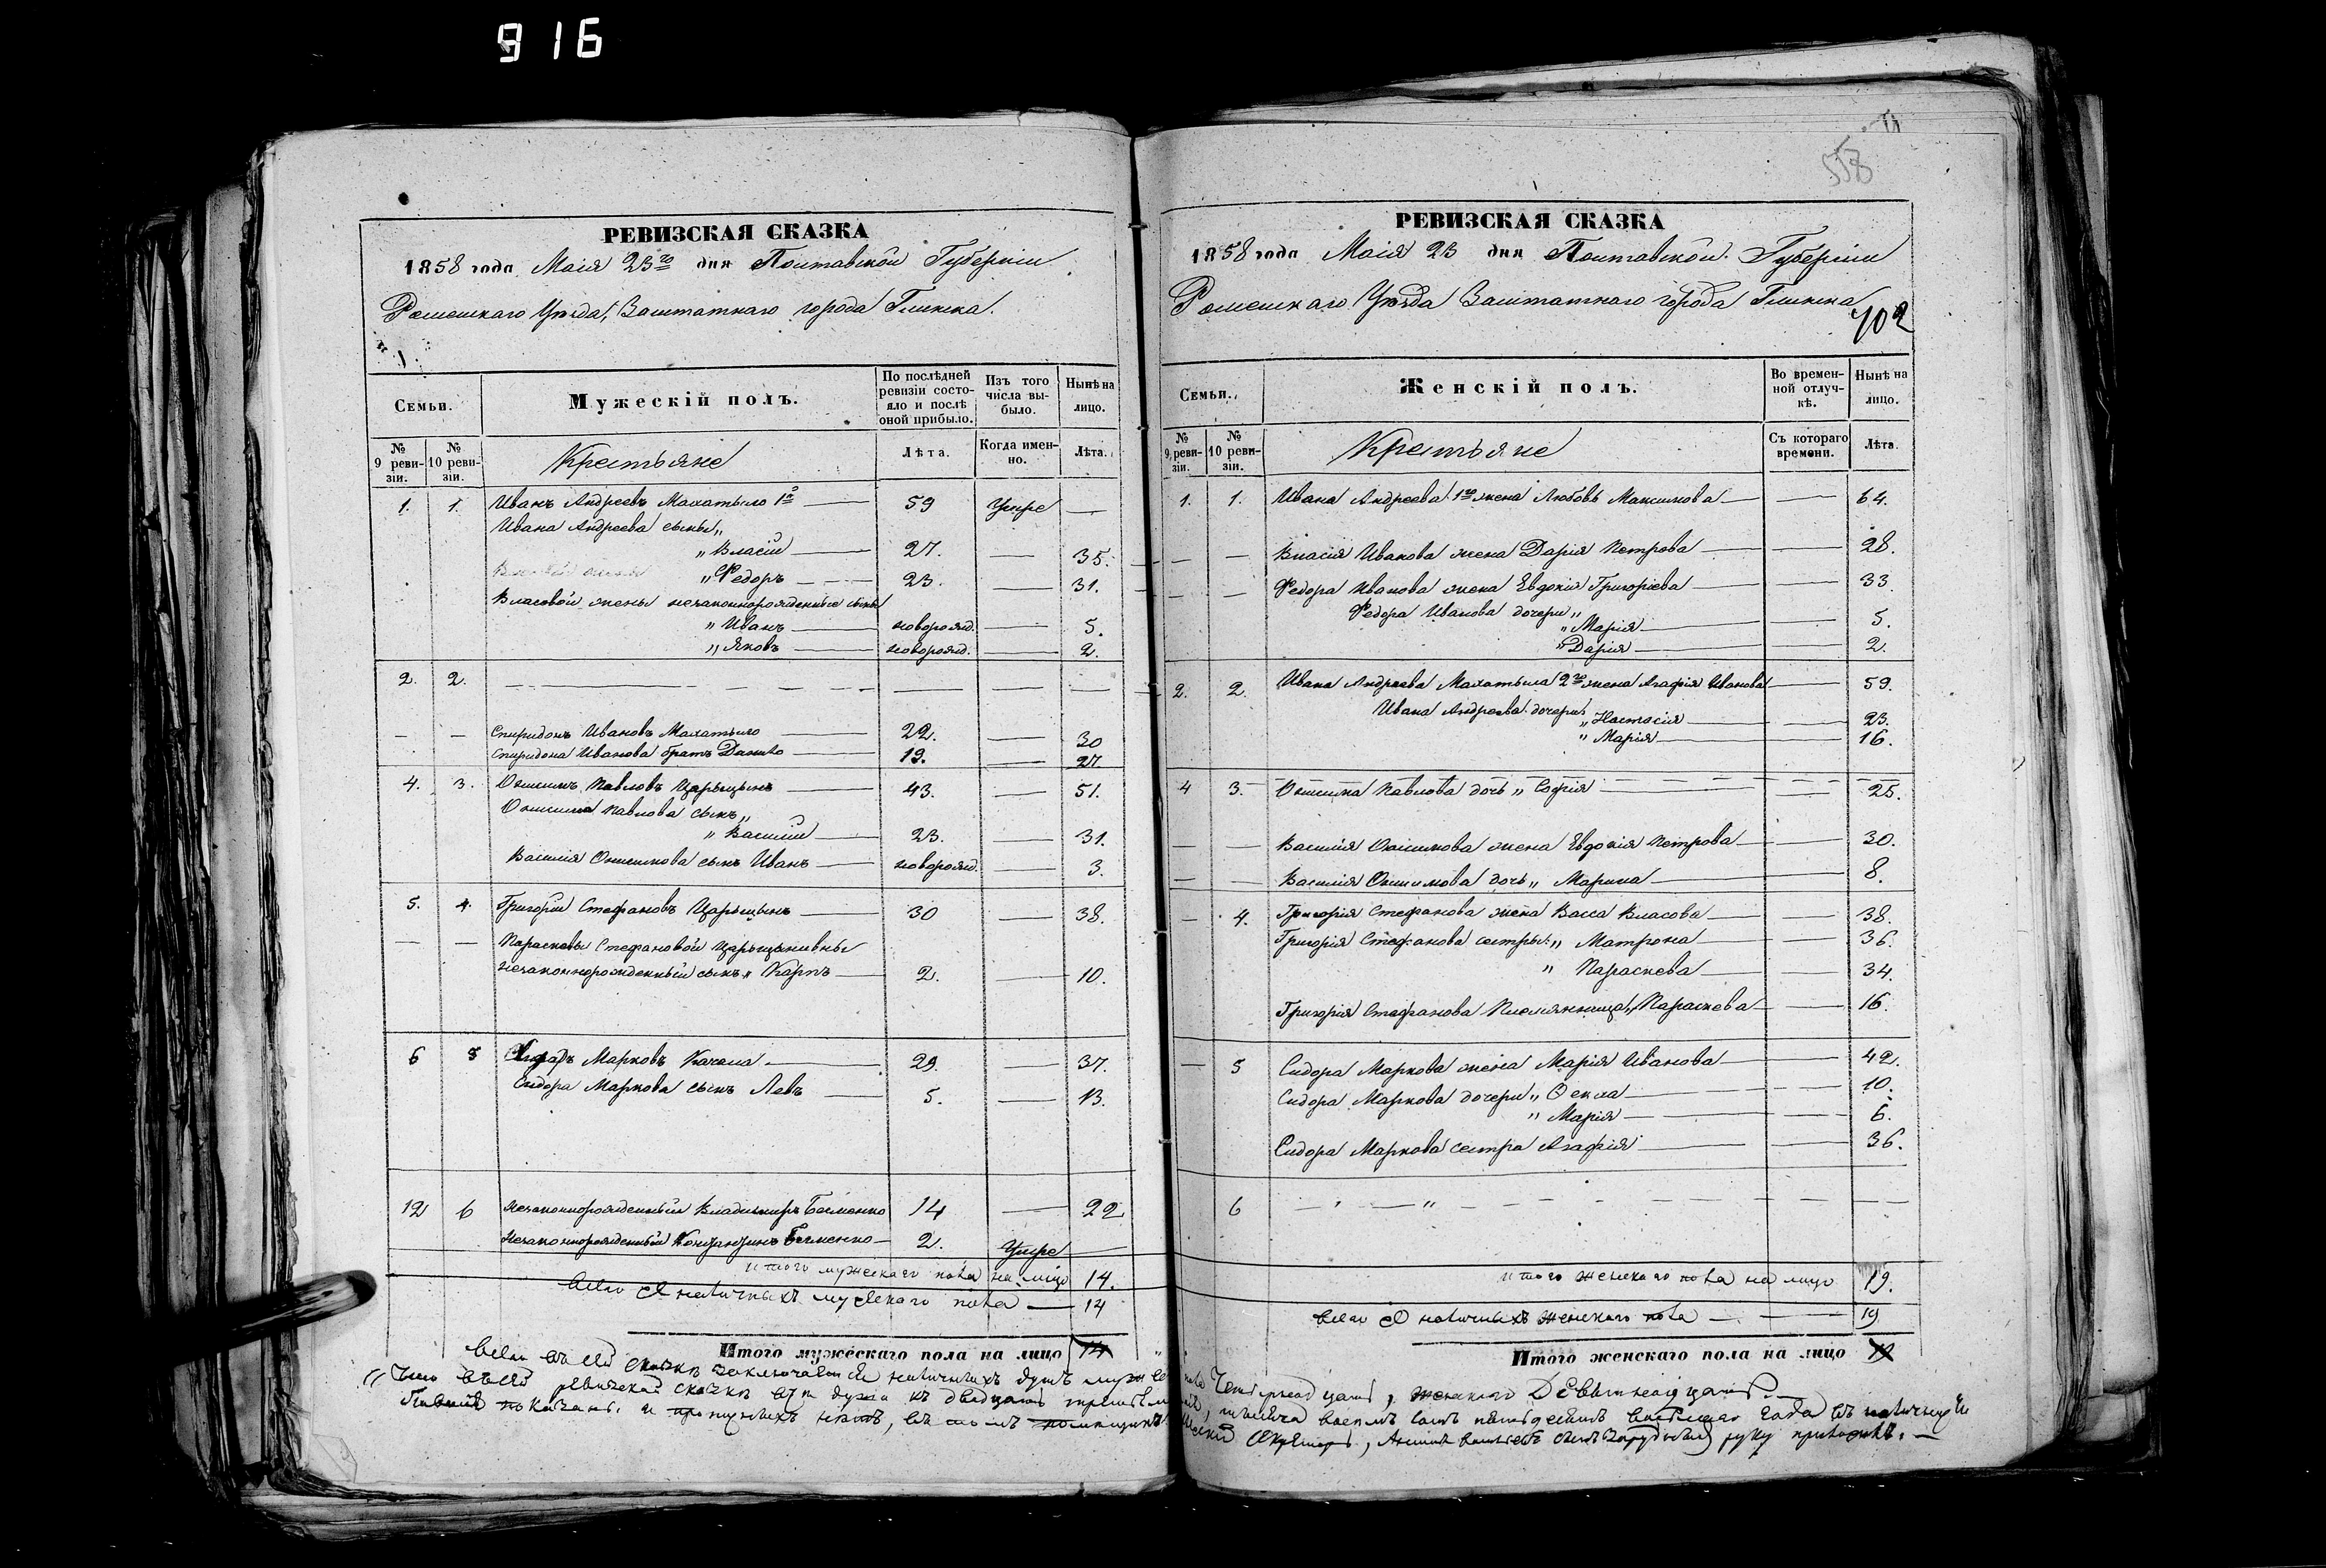 916
РЕВИЗСКАЯ СКАЗКА
1858 года Маія 23го дня Полтавской Губерніи
Роменскаго Уѣзда, Заштатнаго города Глинска.
Семьи.
Мужескій полъ.
По послѣдней ревизіи состояло и послѣ оной прибыло.
Изъ того числа выбыло.
Нынѣ на лицо.
№ 9 ревизіи.
№ 10 ревизіи.
Крестьяне
Лѣта.
Когда именно.
Лѣта.
1. 1. Иванъ Андреевъ Махатыло 1й — 59 Умре —
Ивана Андреева сыны „
„ Власій — 27. — 35.
„ Федоръ — 23. — 31.
Власовой жены незаконнорожденные сыны
„ Иванъ — новорожд. — 5.
„ Яковъ — новорожд. — 2.
2. 2. — — — —
— — Спиридонъ Ивановъ Махатыло — 22. — 30
Спиридона Иванова братъ Данило — 19. — 27
4. 3. Онисимъ Павловъ Царыцынъ — 43. — 51.
Онисима Павлова сынъ „
„ Василій — 23. — 31.
Василія Онисимова сынъ Иванъ — новорожд. — 3.
5. 4. Григорій Стефановъ Царыцынъ — 30 — 38.
— — Параскевы Стефановой Царыцынивны
незаконнорожденный сынъ „ Карпъ — 2. — 10.
6 5 Сидоръ Марковъ Качала — 29. — 37.
Сидора Маркова сынъ Левъ — 5. — 13.
12 6 Незаконнорожденный Владимиръ — 14 — 22
Незаконнорожденный — 2. Умре —
итого мужескаго пола на лицо 14.
Всего наличныхъ мужескаго пола — 14
Итого мужескаго пола на лицо 14
Всего въ сей сказкѣ заключается наличныхъ душъ
„ Что въ сей ревизской сказкѣ всѣ души къ двадцать
показаны. и пропущенныхъ нѣтъ, въ томъ
558
РЕВИЗСКАЯ СКАЗКА
1858 года Маія 23 дня Полтавской Губерніи
Роменскаго Уѣзда Заштатнаго города Глинска
402
Семьи.
Женскій полъ.
Во временной отлучкѣ.
Нынѣ на лицо.
№ 9 ревизіи.
№ 10 ревизіи.
Крестьяне
Съ котораго времени.
Лѣта.
1. 1. Ивана Андреева 1го жена Любовь Максимова — — 64.
— — Власія Иванова жена Дарія Петрова — — 28.
— — Федора Иванова жена Евдокія Григоріева — — 33
Федора Иванова дочери „
„ Марія — — 5.
„ Дарія — — 2.
2. 2. Ивана Андреева Махатыла 2го жена Агафія Иванова — — 59.
Ивана Андреева дочери
„ Настасія — — 23.
„ Марія — — 16.
4 3. Онисима Павлова дочь „ Софія — — 25.
— — Василія Онисимова жена Евдокія Петрова — — 30.
— — Василія Онисимова дочь „ Марина — — 8.
— 4. Григорія Стефанова жена Васса Власова — — 38.
Григорія Стефанова сестры: „ Матрона — — 36.
„ Параскева — — 34.
Григорія Стефанова племянница „ Параскева — — 16.
— 5 Сидора Маркова жена Марія Иванова — — 42.
Сидора Маркова дочери „ Ѳекла — — 10.
„ Марія — — 6.
Сидора Маркова сестра Агафія — — 36.
6 — „ — —
итого женскаго пола на лицо 19.
Всего наличныхъ женскаго пола — 19
Итого женскаго пола на лицо 19
четырнадцать, женскаго девятнадцать. —
тысяча восемь сотъ пятьдесятъ года
руку приложилъ. —